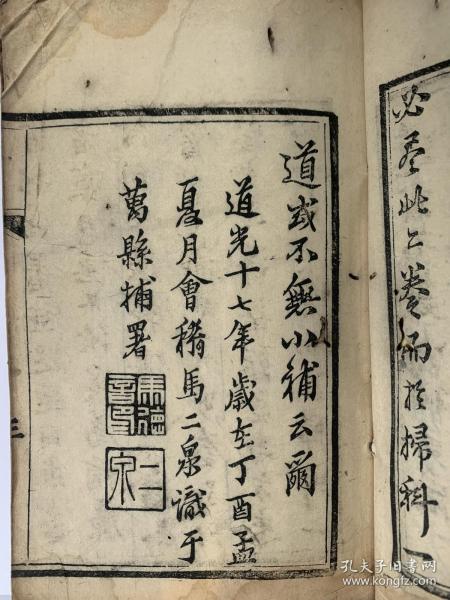 必此二卷而於婦科一
道或不無小補云爾
道光十七年歲在丁酉孟
夏月會稽馬二泉識于
萬縣捕署
二泉
三
孔夫子旧书网
www.kongfz.com